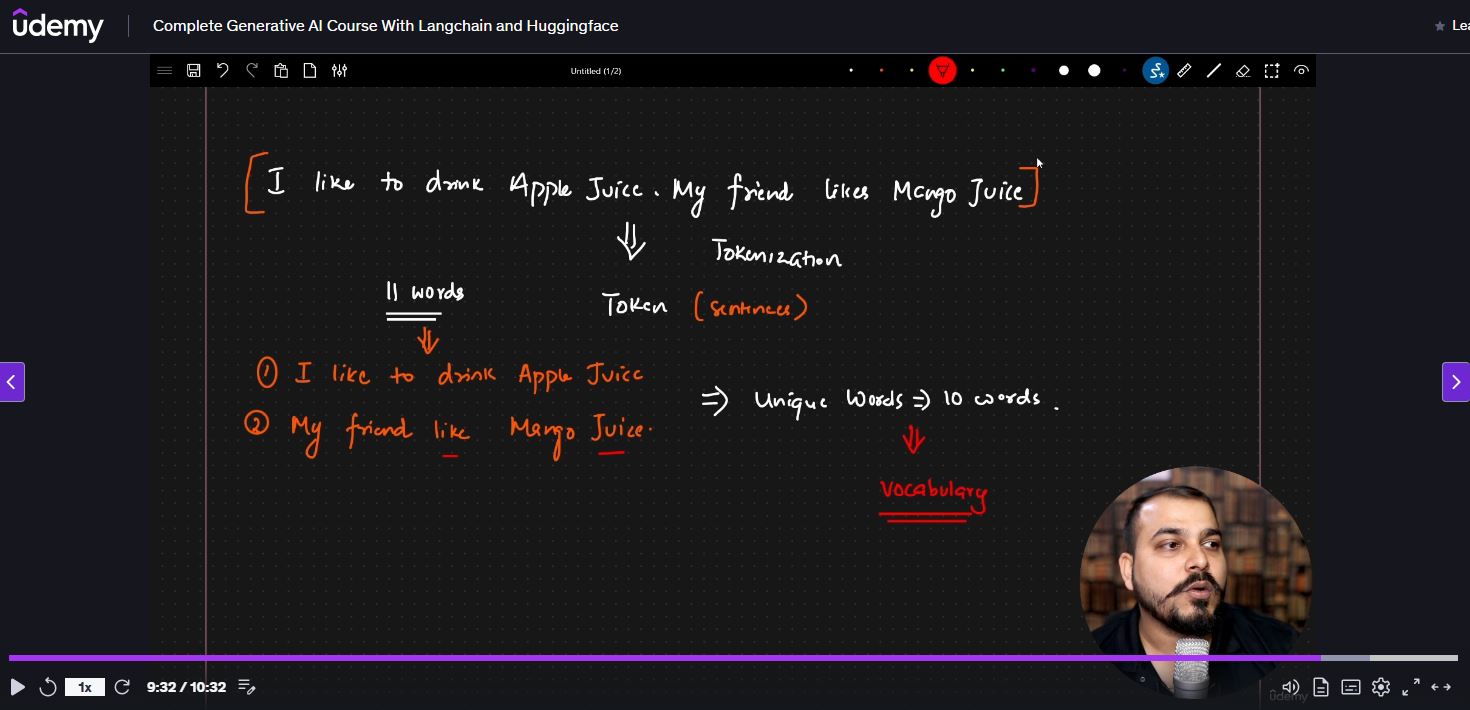 ûdemy Complete Generative AI Course With Langchain and Huggingface Lea
Untitled (1/2)
[I like to drink Apple Juice. My friend likes Mango Juice]
⇓ Tokenization
11 words Token (sentences)
⇓
① I like to drink Apple Juice
② My friend like Mango Juice.
⇒ Unique Words ⇒ 10 words.
⇓
Vocabulary
1x 9:32 / 10:32
ûdemy